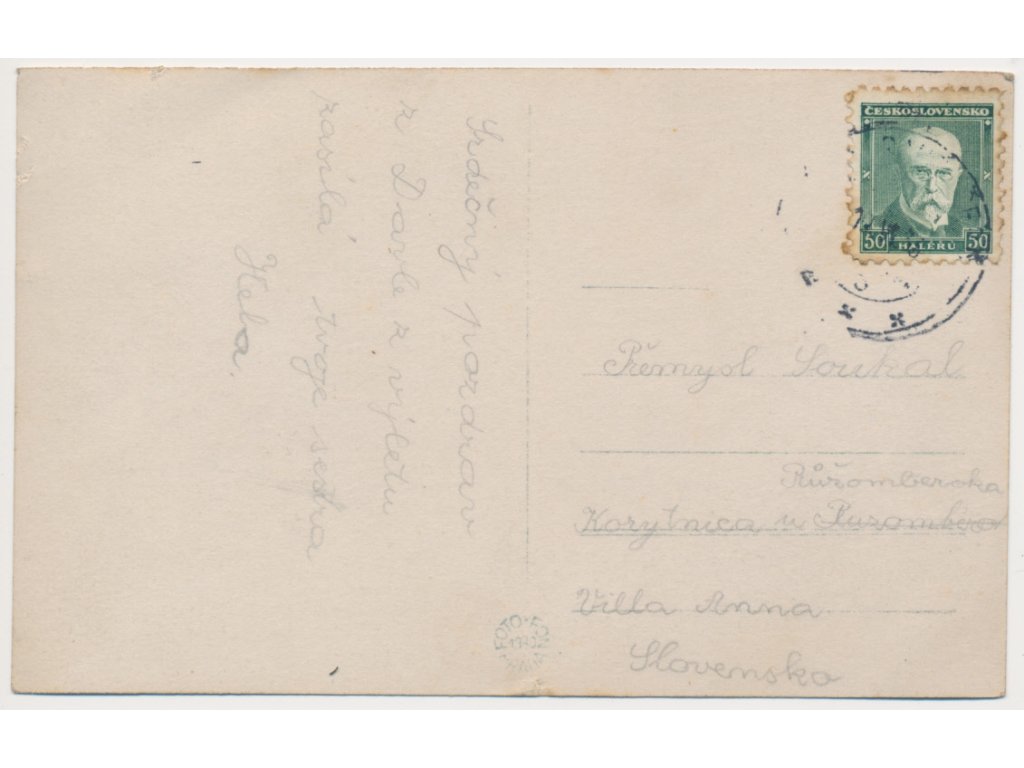 Srdečný pozdrav
z Davle z výletu
zasílá tvoje sestra
Heba.
ČESKOSLOVENSKO
50 HALÉŘŮ 50
Přemysl Soukal
Růžomberoka
Korytnica u Ruzombero
Villa Anna
Slovensko
FOTO FON